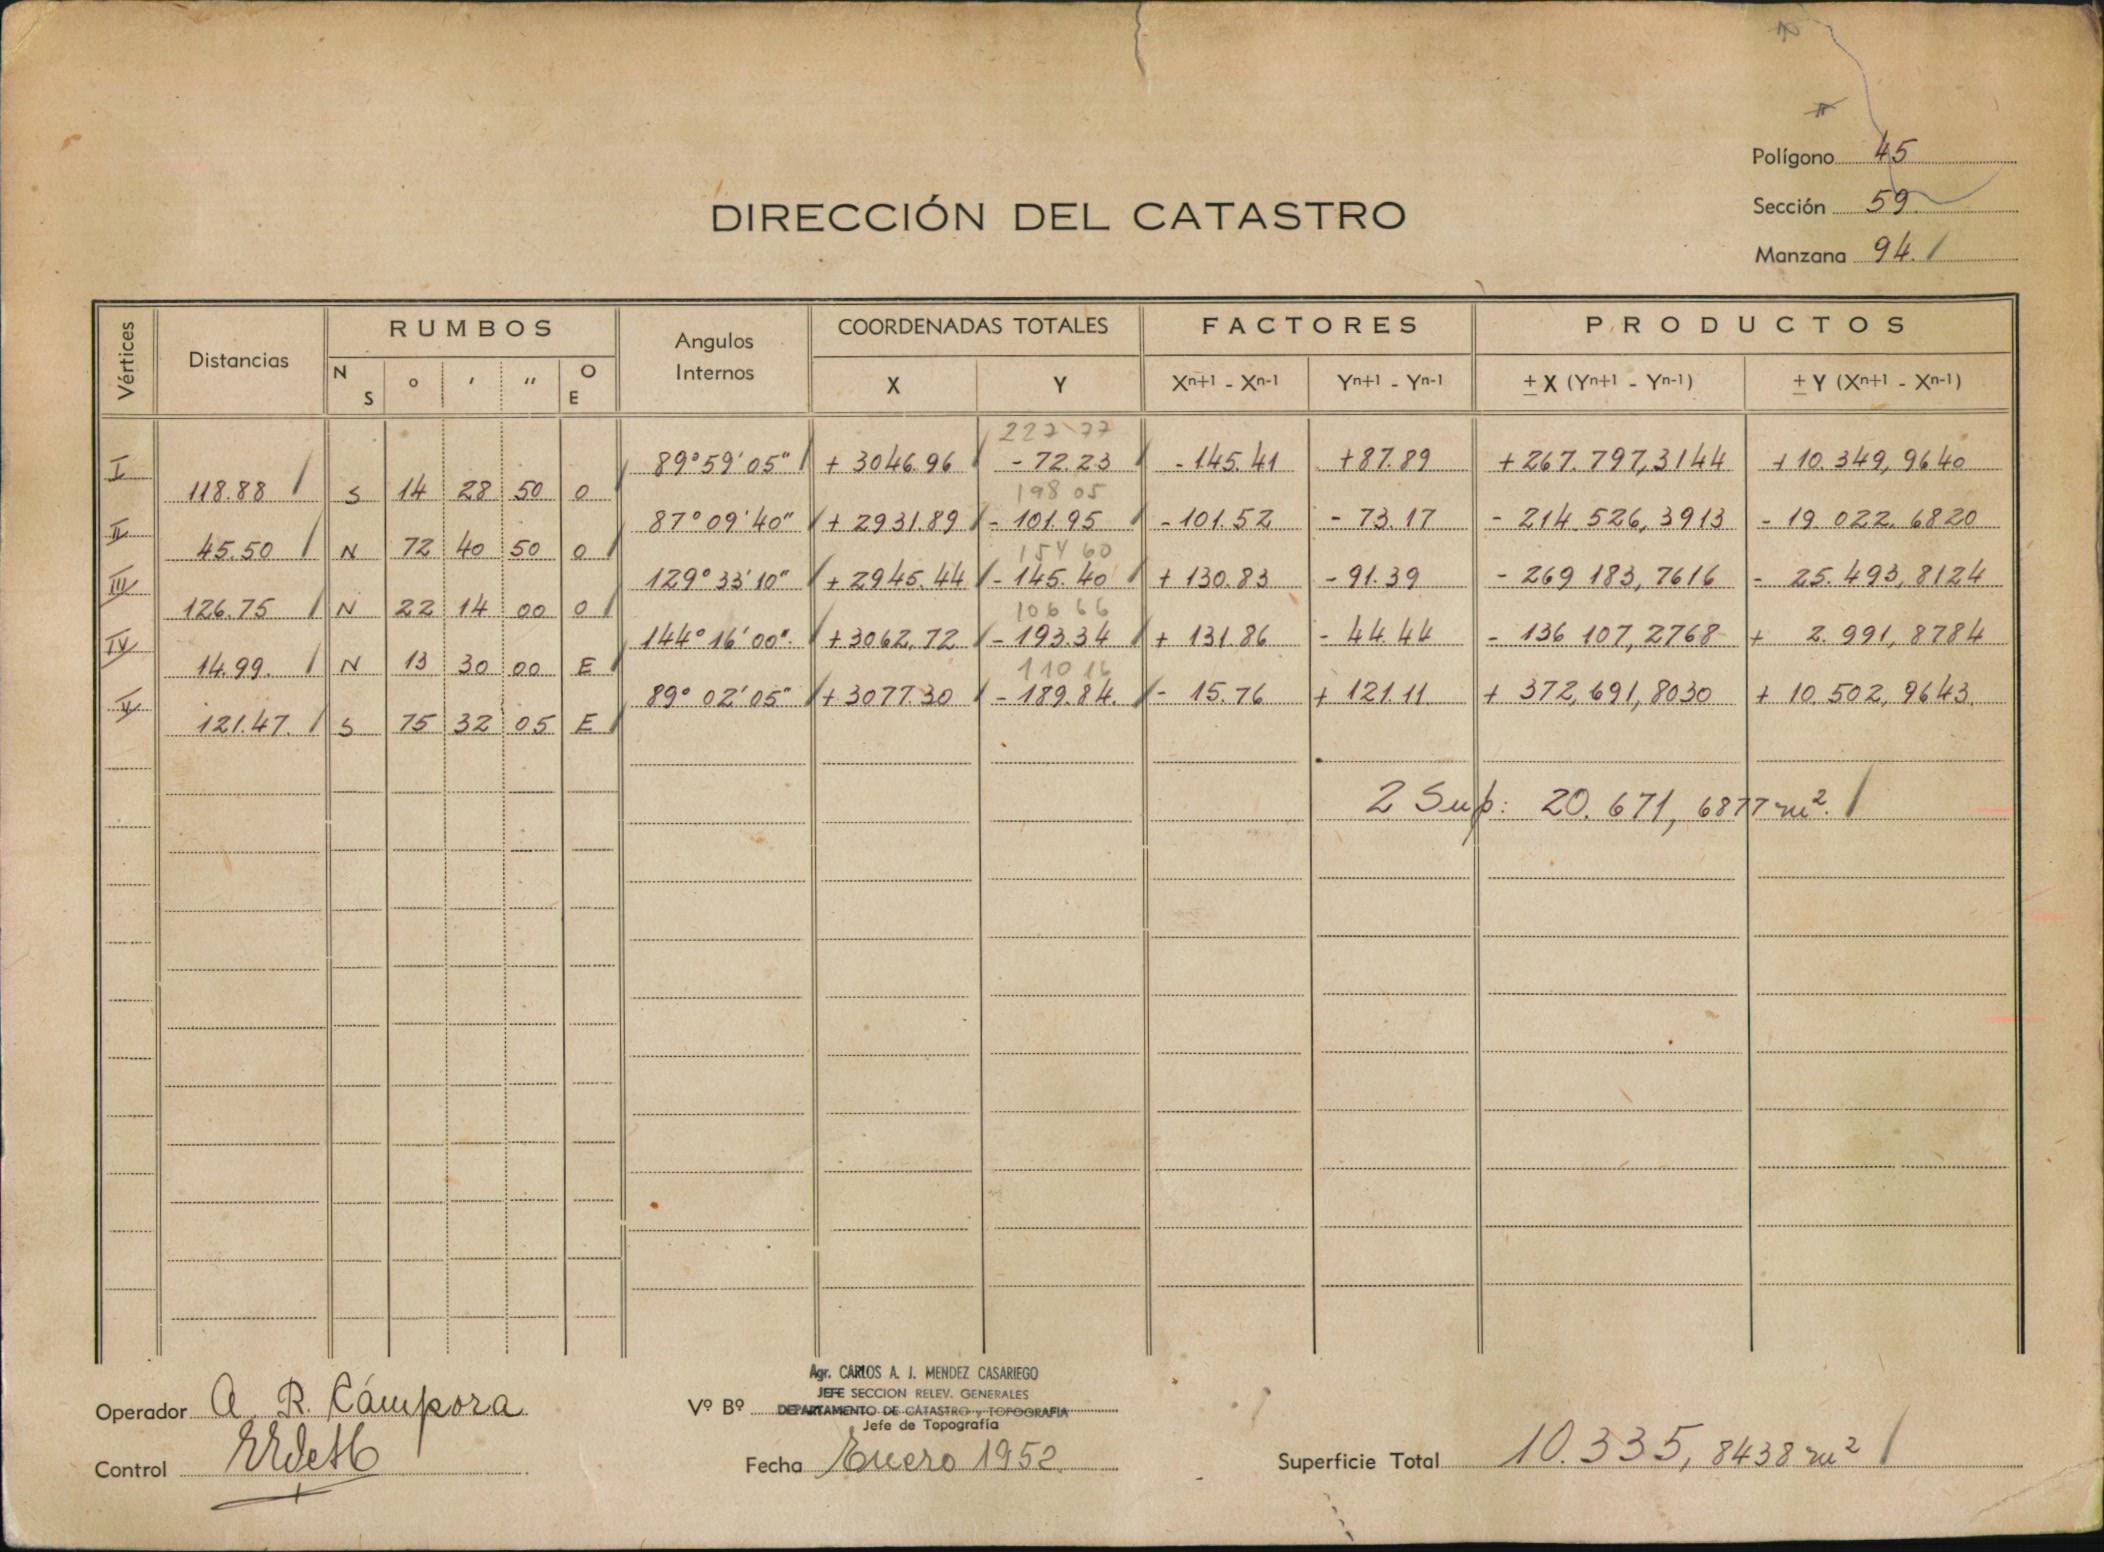 Polígono 45
DIRECCIÓN DEL CATASTRO
Sección 59.
Manzana 94.
Vértices Distancias RUMBOS N S ° ' '' O E Angulos Internos COORDENADAS TOTALES X Y FACTORES Xn+1 - Xn-1 Yn+1 - Yn-1 PRODUCTOS ± X (Yn+1 - Yn-1) ± Y (Xn+1 - Xn-1)
227 77
I 89°59'05" + 3046.96 - 72.23 - 145.41 +87.89 +267.797,3144 + 10.349,9640
118.88 S 14 28 50 O 198 05
II 87°09'40" + 2931.89 - 101.95 - 101.52 - 73.17 - 214.526,3913 - 19 022.6820
45.50 N 72 40 50 O 154 60
III 129°33'10" + 2945.44 - 145.40 + 130.83 - 91.39 - 269 183,7616 - 25.493,8124
126.75 N 22 14 00 O 106 66
IV 144°16'00". +3062,72 - 193.34 + 131.86 - 44.44 - 136 107,2768 + 2.991,8784
14.99. N 13 30 00 E 110 16
V 89°02'05" + 3077 30 - 189.84. - 15.76 + 121.11. + 372,691,8030 + 10.502,9643.
121.47. S 75 32 05 E
2 Sup: 20.671,6877 m².
Operador A. R. Cámpora
Vº Bº
Agr. CARLOS A. J. MENDEZ CASARIEGO
JEFE SECCION RELEV. GENERALES
DEPARTAMENTO DE CATASTRO y TOPOGRAFIA
Jefe de Topografía
Control
Fecha Enero 1952
Superficie Total 10.335,8438 m²